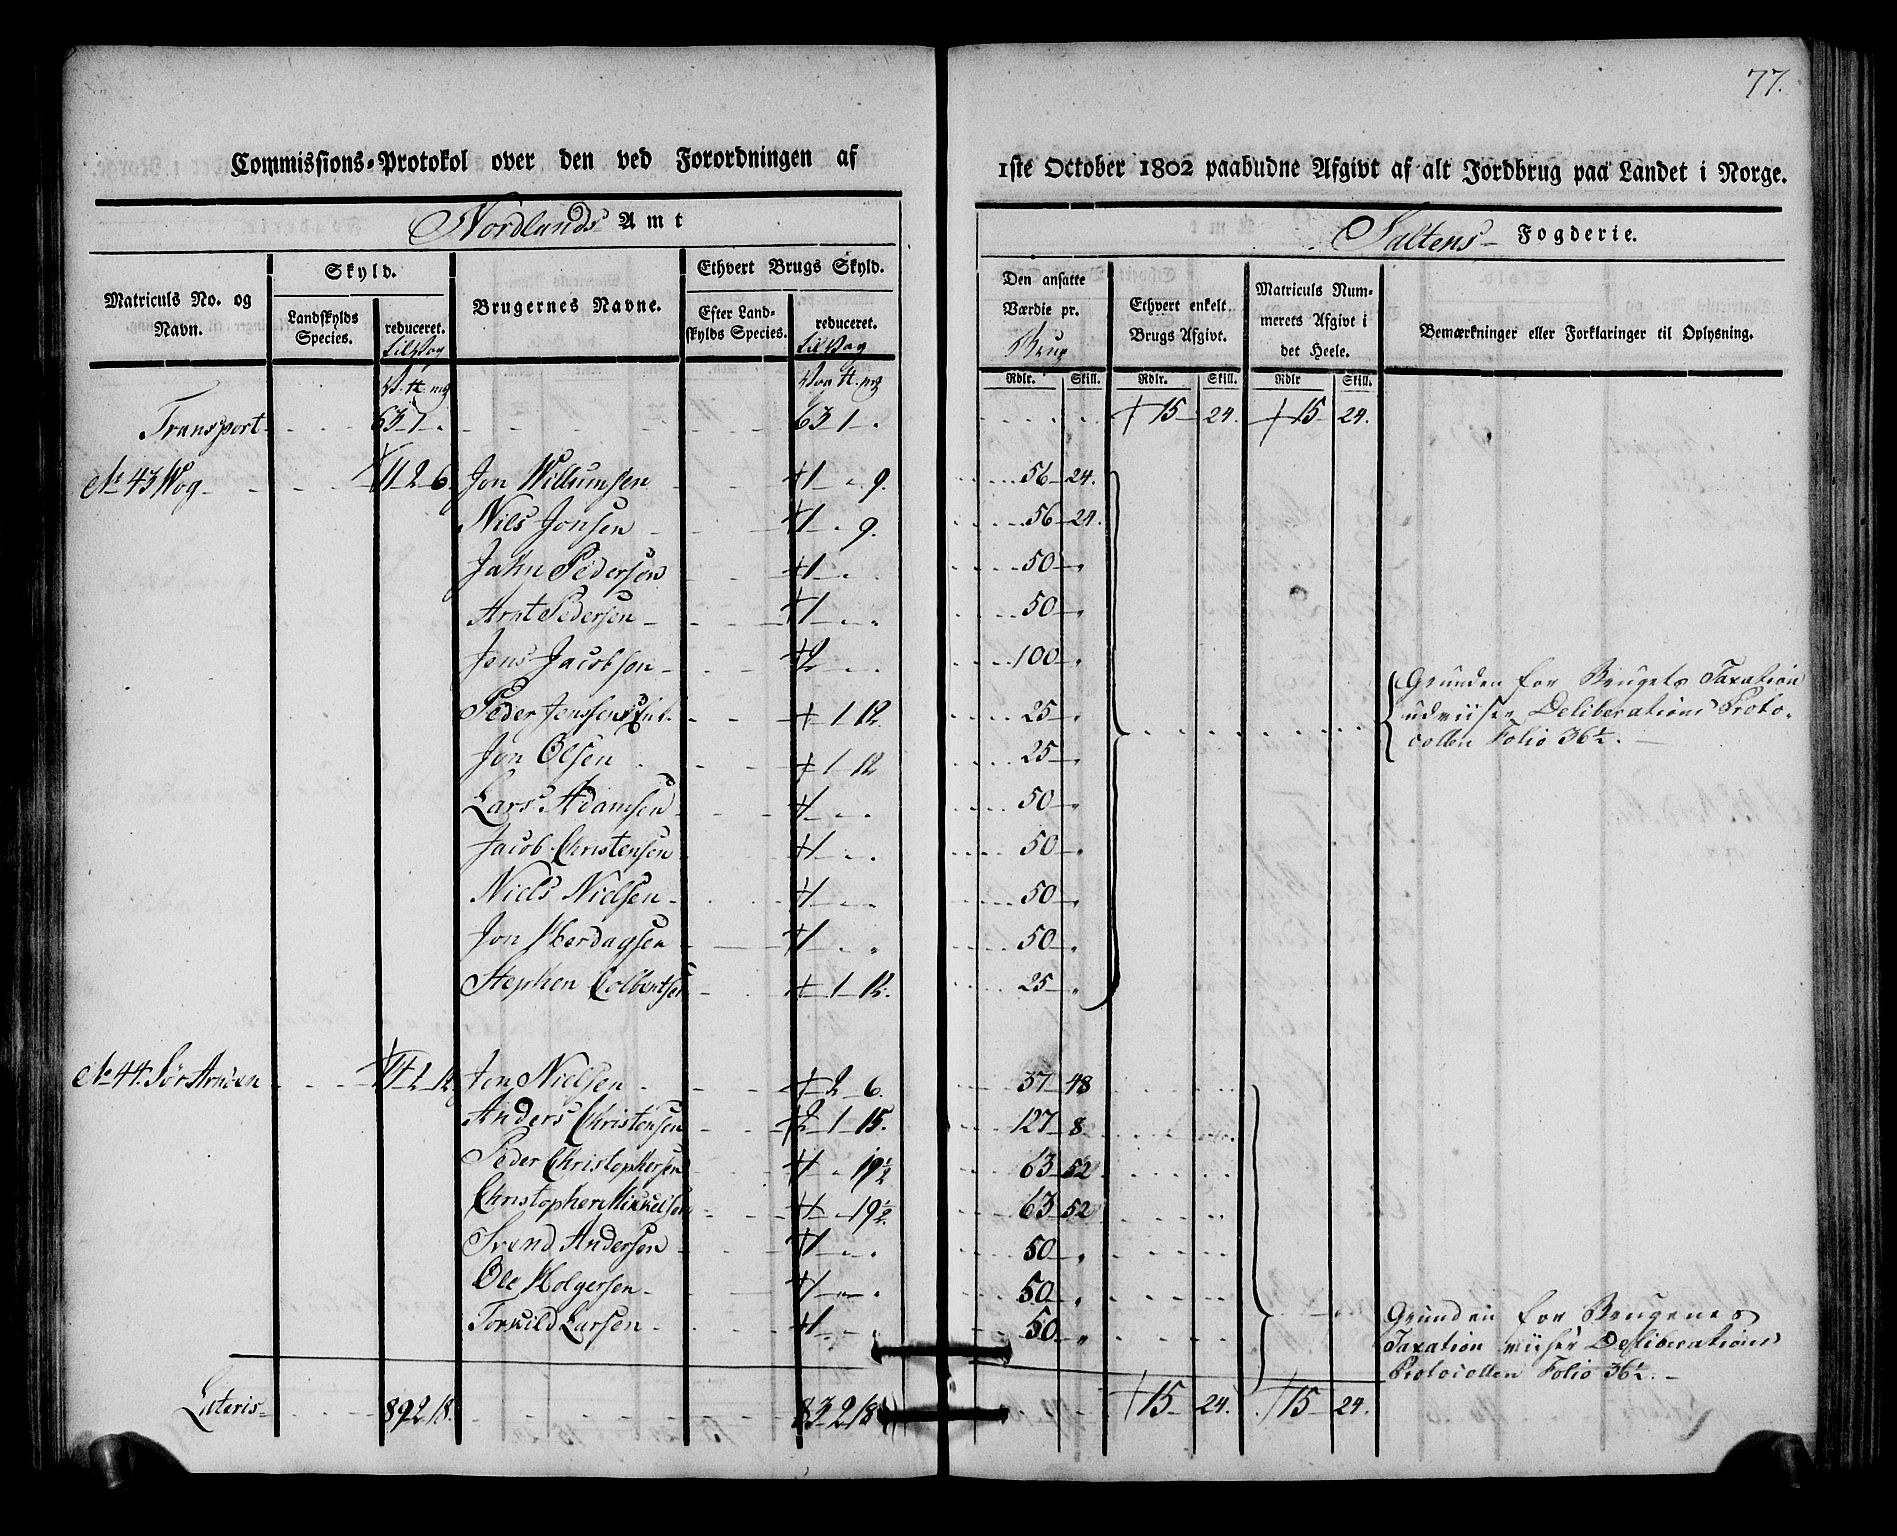 77.
Commissions-Protokol over den ved Forordningen af
1ste October 1802 paabudne Afgivt af alt Jordbrug paa Landet i Norge.
Nordlands Amt
Saltens Fogderie.
Matriculs No. og Navn.
Skyld.
Landskylds Species.
reduceret.
Brugernes Navne.
Ethvert Brugs Skyld.
Efter Landskylds Species.
reduceret.
Den ansatte Værdie pr. Brug
Ethvert enkelt Brugs Afgivt.
Matriculs Nummerets Afgivt i det Heele.
Bemærkninger eller Forklaringer til Oplysning.
Rdlr. Skill. Rdlr. Skill. Rdlr Skill.
Transport 63 1 " 63 1 " 15 24. 15 24.
No 43 Wog 11 2 6 Jon Willumsen 1 " 9. 56 24.
Nils Jonsen 1 " 9. 56 24.
Jahn Pedersen 1 " " 50 "
Arnt Pedersen 1 " " 50 "
Jens Jacobsen 2 " " 100 "
Peder Jenssen 1 12. 25 "
Jon Olsen 1 12 25 "
Lars Adamsen 1 " " 50 "
Jacob Christensen 1 " " 50 "
Niels Nielsen 1 " " 50 "
Jon Herdagsen 1 " " 50 "
Stephen Colbentsen 1 12. 25 "
Grunden for Brugets Taxation
udviiser Deliberations Proto-
collen Folio 36½.
No 44. Sør Arnøen 14 2 12 Jon Nielsen 2 6. 37 48
Anders Christensen 2 1 15. 127 8
Peder Christophersen 1 " 19½ 63 52
Christopher Mikkelsen 1 " 19½ 63 52
Svend Andersen 1 " " 50 "
Ole Holgersen 1 " " 50 "
Torkild Larsen 1 " " 50 "
Grunden for Brugenes
Taxation viiser Deliberations
Protocollen Folio 36½.
Lateris 89 2 18. 83 2 18 15 24. 15 24.